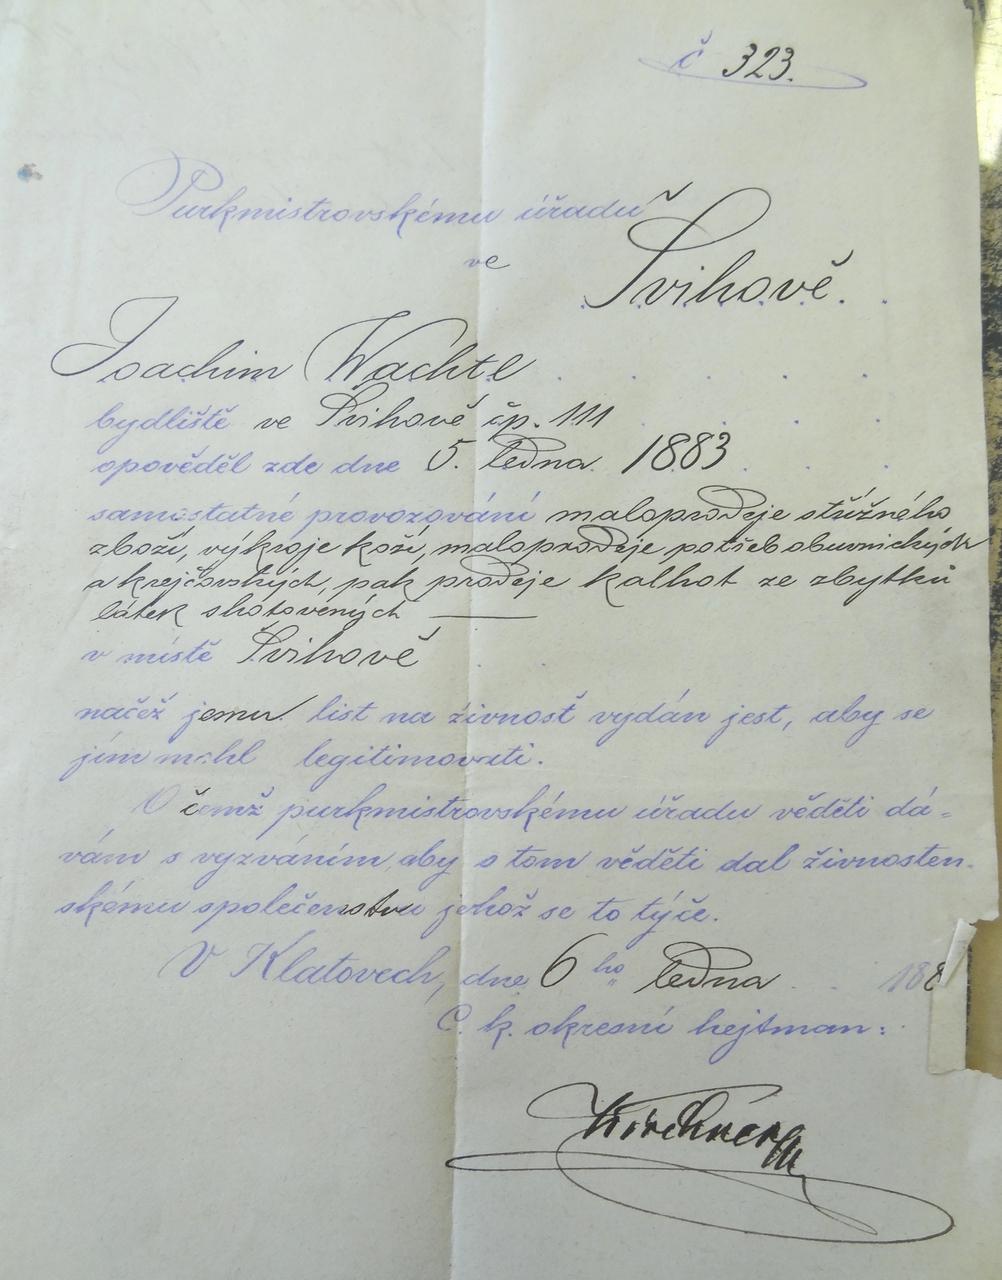 č 323.
Purkmistrovskému úřadu
ve
Švihově.
Joachim Wachtl
bydliště ve Švihově čp. 111
opověděl zde dne 5. ledna 1883
samostatné provozování maloprodeje stůžného
zboží, výkroje koží, maloprodeje potřeb obuvnických
a krejčovských, pak prodeje kalhot ze zbytků
látek shotovených
v místě Švihově
načež jemu list na živnosť vydán jest, aby se
jím mohl legitimovati.
O čemž purkmistrovskému úřadu věděti dá-
vám s vyzváním, aby o tom věděti dal živnosten-
skému společenstvu jehož se to týče.
V Klatovech, dne 6ho ledna 188
C. k. okresní hejtman: